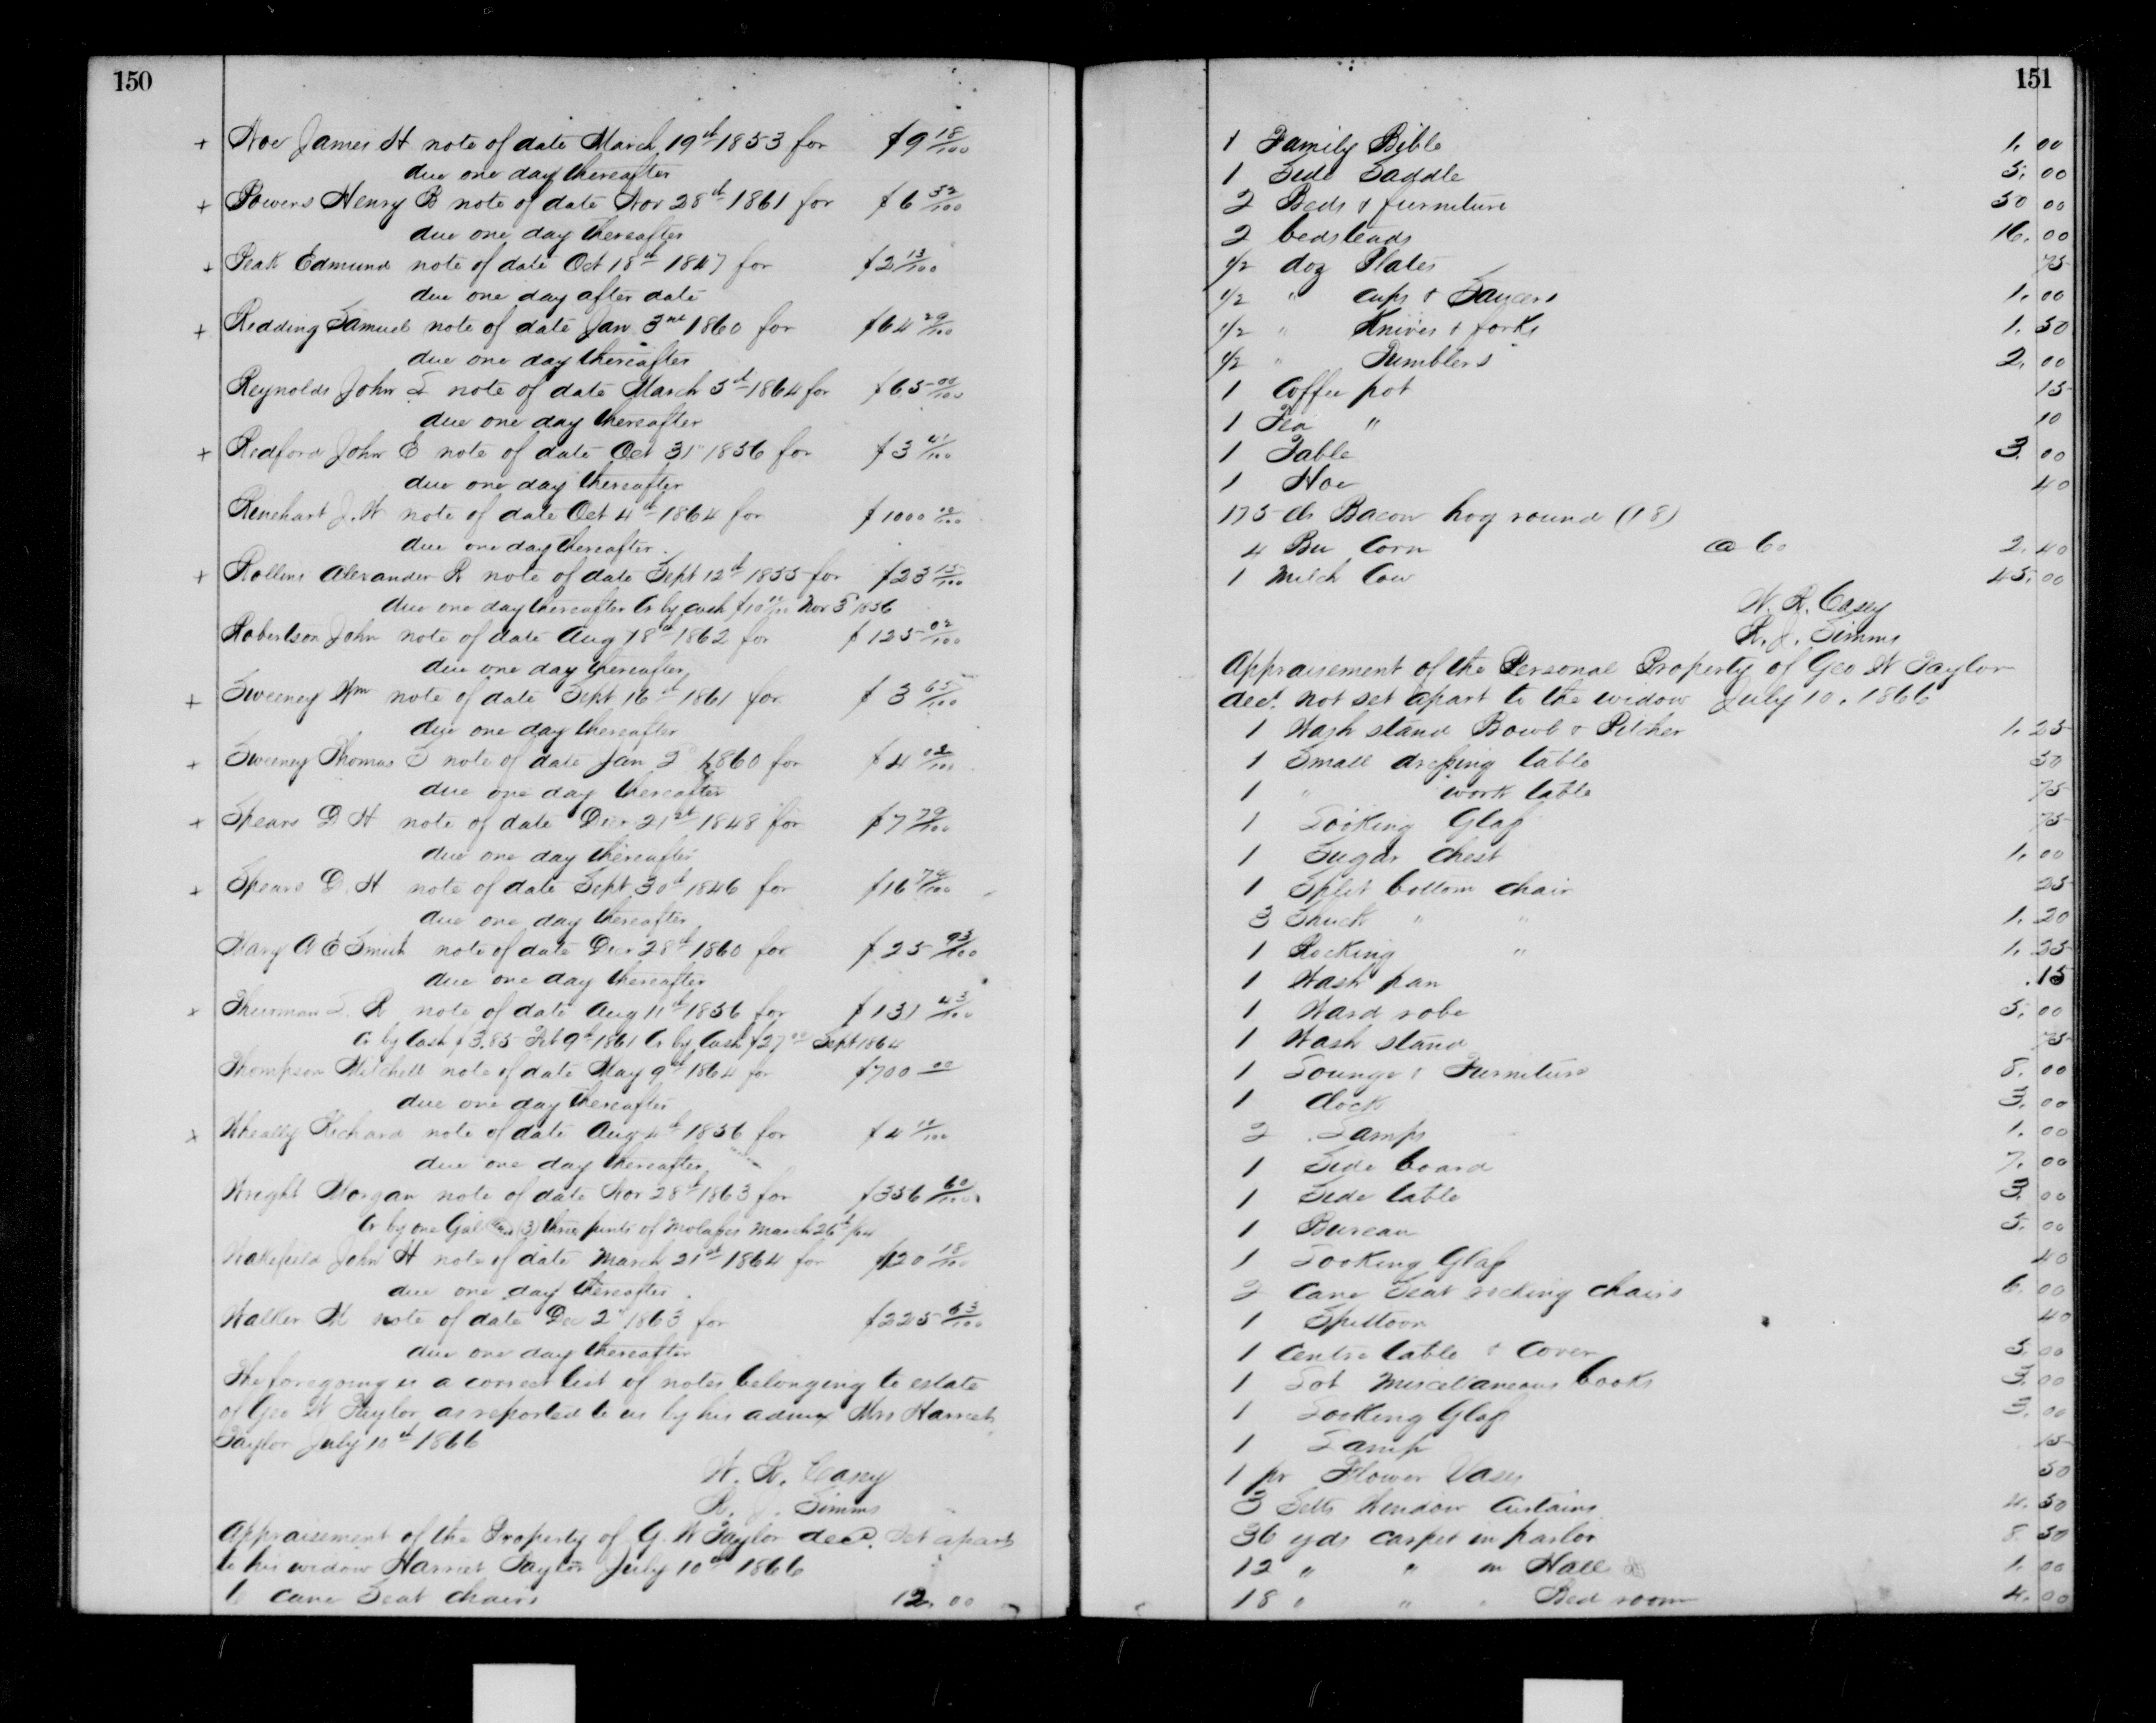 150
+ Noe James H note of date March 19th 1853 for $9 18/100
due one day thereafter
+ Powers Henry B note of date Nov 28th 1861 for $6 52/100
due one day thereafter
+ Peak Edmund note of date Oct 18th 1847 for $2 13/100
due one day after date
+ Redding Samuel note of date Jan 3rd 1860 for $64 29/100
due one day thereafter
Reynolds John S note of date March 5th 1864 for $65 00/100
due one day thereafter
+ Redford John E note of date Oct 31st 1856 for $3 41/100
due one day thereafter
Rinehart J. W note of date Oct 4th 1864 for $1000 00/100
due one day thereafter.
+ Rollins Alexander R note of date Sept 12th 1855 for $23 15/100
due one day thereafter Cr by cash Nov 5 1856
Robertson John note of date Aug 18th 1862 for $125 02/100
due one day thereafter
+ Sweeney Wm note of date Sept 16th 1861 for $3 65/100
due one day thereafter
+ Sweeney Thomas S note of date Jan 2d 1860 for $4 02/100
due one day thereafter
+ Spears D H note of date Decr 21st 1848 for $7 79/100
due one day thereafter
+ Spears D. H note of date Sept 30th 1846 for $16 74/100
due one day thereafter
Mary A E Smith note of date Decr 28th 1860 for $25 93/100
due one day thereafter
x Thurman S. R note of date Aug 11th 1856 for $131 43/100
Cr by Cash $3.85 Feb 9th 1861 Cr by Cash $27 00 Sept 1864
Thompson Mitchell note of date May 9th 1864 for $700 00
due one day thereafter
x Wheally Richard note of date Aug 4th 1856 for $4 10/100
due one day thereafter
Wright Morgan note of date Nov 28th 1863 for $356 60/100
Cr by one Gal (3) three pints of Molasses March 26th /64
Wakefield John H note of date March 21st 1864 for $120 18/100
due one day thereafter.
Walker H note of date Dec 2d 1863 for $225 63/100
due one day thereafter
The foregoing is a correct list of notes belonging to estate
of Geo W Taylor as reported to us by his admx Mrs Harriet
Taylor July 10th 1866
W. R. Casey
R. J. Simms
Appraisement of the Property of G. W Taylor decd. Set apart
to his widow Harriet Taylor July 10th 1866
6 Cane Seat chairs 12.00
151
1 Family Bible 1.00
1 Side Saddle 5.00
2 Beds & furniture 50 00
2 bedsteads 16.00
1/2 doz Plates 75
1/2 " Cups & Saucers 1.00
1/2 " Knives & forks 1.50
1/2 " Tumblers 2.00
1 Coffee pot 15
1 Tea " 10
1 Table 3.00
1 Hoe 40
175 lbs Bacon hog round (18)
4 Bu Corn @ 60 2.40
1 Milch Cow 45.00
W. R. Casey
R. J. Simms
Appraisement of the Personal Property of Geo W Taylor
decd. not set apart to the widow July 10. 1866
1 Wash stand Bowl & Pitcher 1.25
1 Small dressing table 50
1 " work table 75
1 Looking Glass 75
1 Sugar chest 1.00
1 Split bottom chair 25
3 Shuck " " 1.20
1 Rocking " 1.25
1 Wash pan .15
1 Ward robe 5.00
1 Wash stand 75
1 Lounge & Furniture 8.00
1 Clock 3.00
2 Lamps 1.00
1 Side board 7.00
1 Side table 3.00
1 Bureau 5.00
1 Looking Glass 40
2 Cane Seat rocking chairs 6.00
1 Spittoon 40
1 Centre table & Cover 5.00
1 Lot Miscellaneous books 3.00
1 Looking Glass 3.00
1 Lamp 15
1 pr Flower Vases 50
3 Setts Window Curtains 4.50
36 yds carpet in parlor 8 50
12 " " in Hall 1.00
18 " " " Bed room 4.00